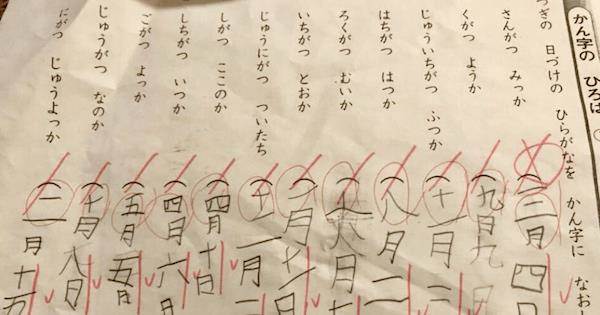 かん字の ひろば
つぎの 日づけの ひらがなを かん字に なおし
さんがつ みっか (三月四日
くがつ ようか (九日九日
じゅういちがつ ふつか (十一月三
はちがつ はつか (八月二
ろくがつ むいか (月
いちがつ とおか (一月十一日
じゅうにがつ ついたち (月二
しがつ ここのか (四月十日
しちがつ いつか (四月六日
ごがつ よっか (五月五日
じゅうがつ なのか (十月八日
にがつ じゅうよっか (二月十五